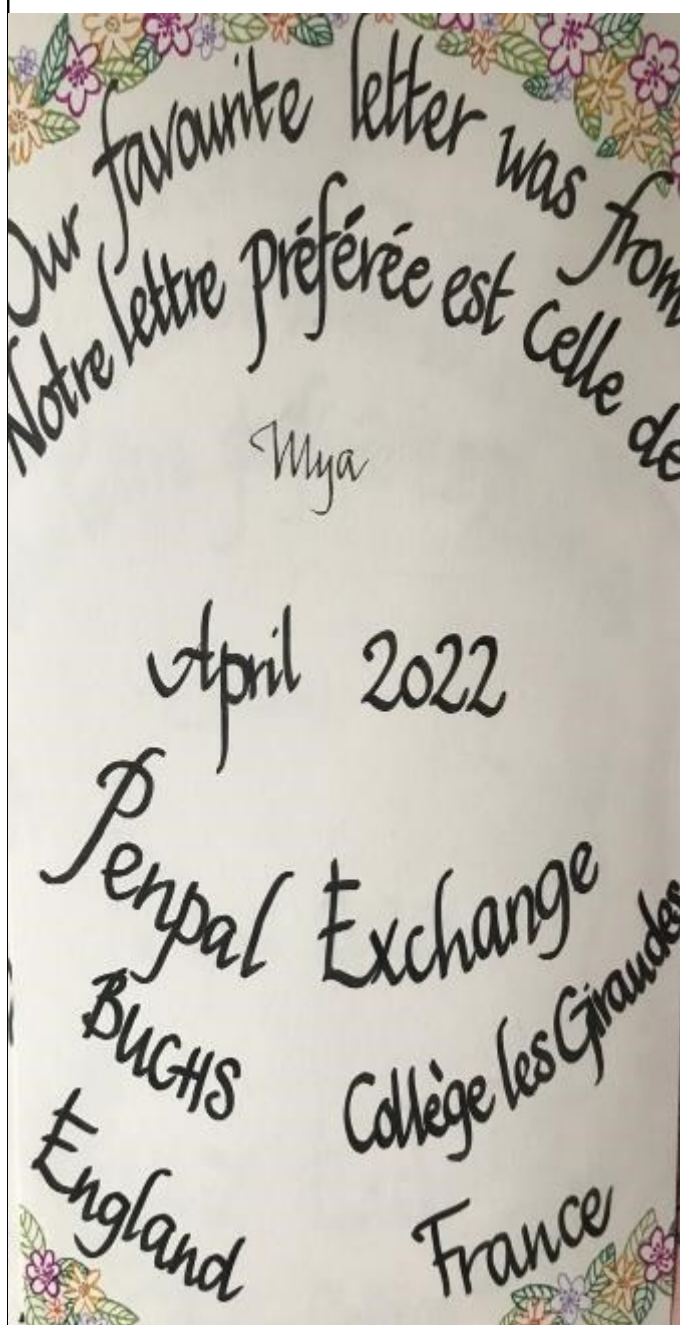 Our favourite letter was from
Notre lettre préférée est celle de
Mya
April 2022
Penpal Exchange
BUGHS
Collège les Giraudes
England
France